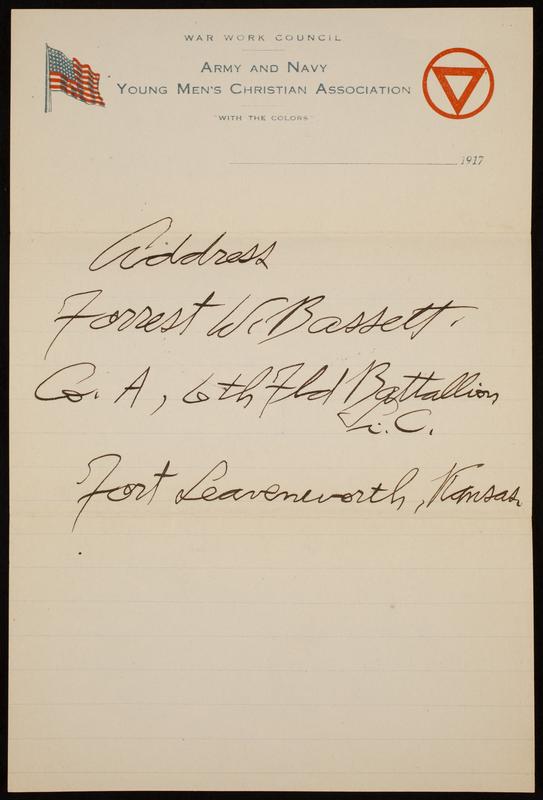 WAR WORK COUNCIL
ARMY AND NAVY
YOUNG MEN'S CHRISTIAN ASSOCIATION
"WITH THE COLORS"
1917
Address
Forrest W. Bassett.
Co. A, 6th Fld Battallion
S.C.
Fort Leavenworth, Kansas.